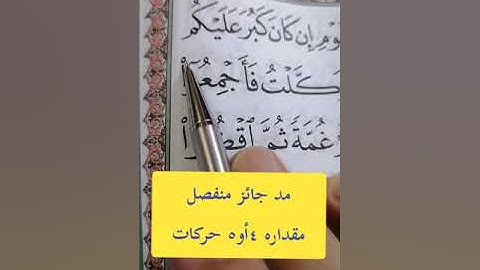 إِن كَانَ كَبُرَ عَلَيْكُم
فَأَجْمِعُوٓا۟
غُمَّةً ثُمَّ
مد جائز منفصل
مقداره ٤أو٥ حركات